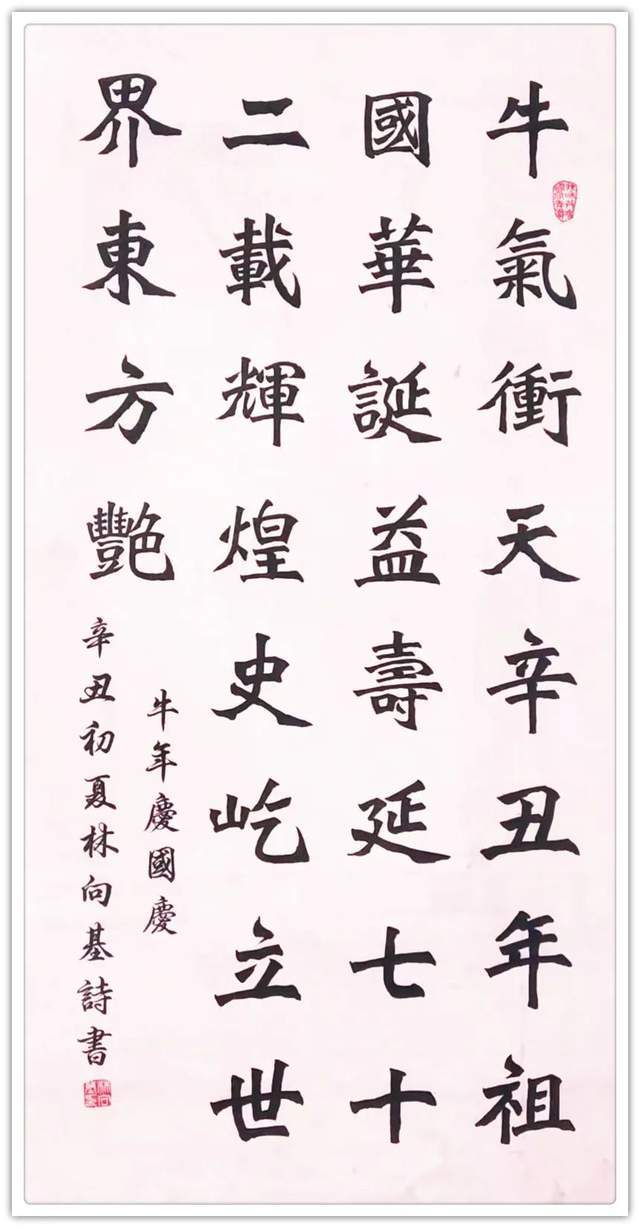 牛氣衝天辛丑年祖
國華誕益壽延七十
二載輝煌史屹立世
界東方艷
牛年慶國慶
辛丑初夏林向基詩書